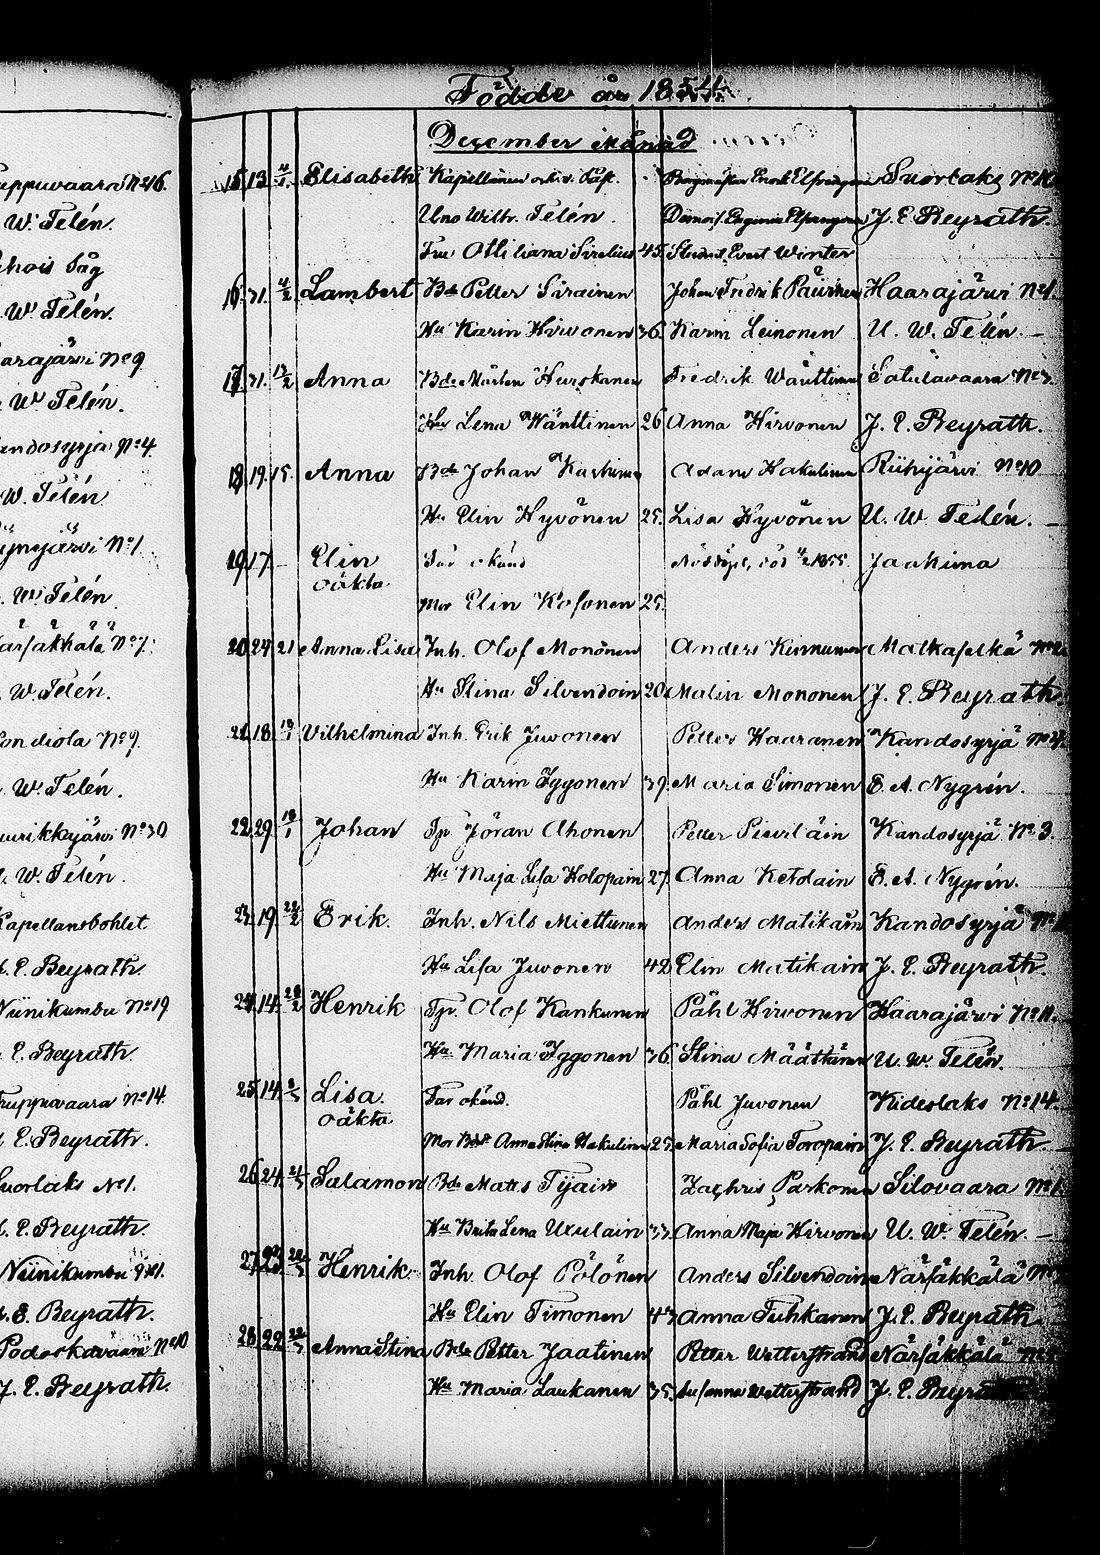 uppuvaara No 16.
W. Telén.
W. Telén.
arajärvi No 9
W. Telén.
andosyrjä No 4
W. Telén.
ynejärvi No 1
W. Telén.
No 7.
W. Telén.
ondiola No 9.
W. Telén.
uurikkajärvi No 30
W. Telén.
Kapellansbohlet
J. E. Beyrath.
Niinikumbu No 19
E. Beyrath.
Truppuvaara No 14.
E. Beyrath.
Suorlaks No 1.
E. Beyrath.
Niinikumbu
E. Beyrath.
No 10
J. E. Beyrath.
Födde år 1854
December Månad
15. 13. Elisabeth Kapellanen och v. Past. Enok Suorlaks No 10
Uno Wilh. Telén. J. E. Beyrath.
Fru Ottiliana Sirelius 45. Student Evert Winter
16. 31. Lambert Bde Petter Sirainen Johan Fredrik Haarajärvi No 1.
Hu Karin Hirvonen 36. Karin Leinonen U. W. Telén.
17. 31. 13/2 Anna Bde Mårten Hurskanen Fredrik Wänttinen Satulavaara No 3.
Hu Lena Wänttinen 26 Anna Hirvonen J. E. Beyrath.
18. 19. 15. Anna Bde Johan Adam Hakulinen Riihijärvi No 10
Hu Elin Hyvönen 25. Lisa Hyvönen U. W. Telén.
19. 17. – Elin Far okänd Nöddöpt, död 1855. Jaakima
oäkta
Mor Elin Kosonen 25.
20. 24. 21 Anna Lisa Inh. Olof Mononen Anders Kinnunen Matkaselkä No 2
Hu Stina Silvendoin 20. Malin Mononen J. E. Beyrath.
21. 18. Vilhelmina Inh. Erik Juvonen Petter Haaranen Kandosyrjä No 4.
Hu Karin Iggonen 39. Maria Simonen E. A. Nygrén.
22. 29. Johan Tp. Jöran Ahonen Petter Kandosyrjä No 3.
Hu Maja Lisa Holopain 27. Anna E. A. Nygrén.
23. 19. Erik. Inh. Nils Miettinen Anders Matikain Kandosyrjä No
Hu Lisa Juvonen 42. Elin Matikain J. E. Beyrath.
24. 14. Henrik Tp. Olof Kankunen Påhl Hirvonen Haarajärvi No 11.
Hu Maria Iggonen 36. Stina Määttänen U. W. Telén.
25. 14. Lisa. Far okänd. Påhl Juvonen Kideslaks No 14.
oäkta
Mor Anna Stina Hakulinen 25. Maria Sofia Toropain J. E. Beyrath.
26. 24. Salamon Bde Matts Tijain Zachris Parkonen Silovaara No 1
Hu Brita Lena Uxulain 33. Anna Maja Hirvonen U. W. Telén.
27. Henrik. Inh. Olof Pölönen Anders Silvendoin Närsäkkälä No
Hu Elin Timonen 43. Anna Tuhkanen J. E. Beyrath.
28. 22. Anna Stina Bde Petter Jaatinen Petter Wetterstrand Närsäkkälä No
Hu Maria Laukanen 35. Susanna Wetterstrand J. E. Beyrath